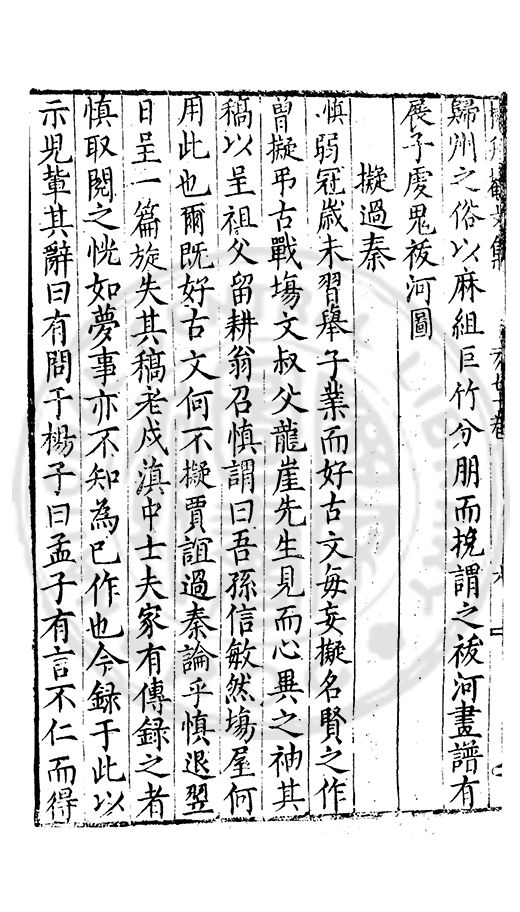 歸州之俗以麻組巨竹分朋而挽謂之袚河畫譜有
展子虔鬼袚河圖
擬過秦
慎弱冠歲未習舉子業而好古文每妄擬名賢之作
曾擬弔古戰場文叔父龍崖先生見而心異之袖其
稿以呈祖父留耕翁召慎謂曰吾孫信敏然塲屋何
用此也爾既好古文何不擬賈誼過秦論乎慎退翌
日呈一篇旋失其稿老戍滇中士夫家有傳録之者
慎取閱之恍如夢事亦不知為已作也今録于此以
示兒輩其辭曰有問于楊子曰孟子有言不仁而得